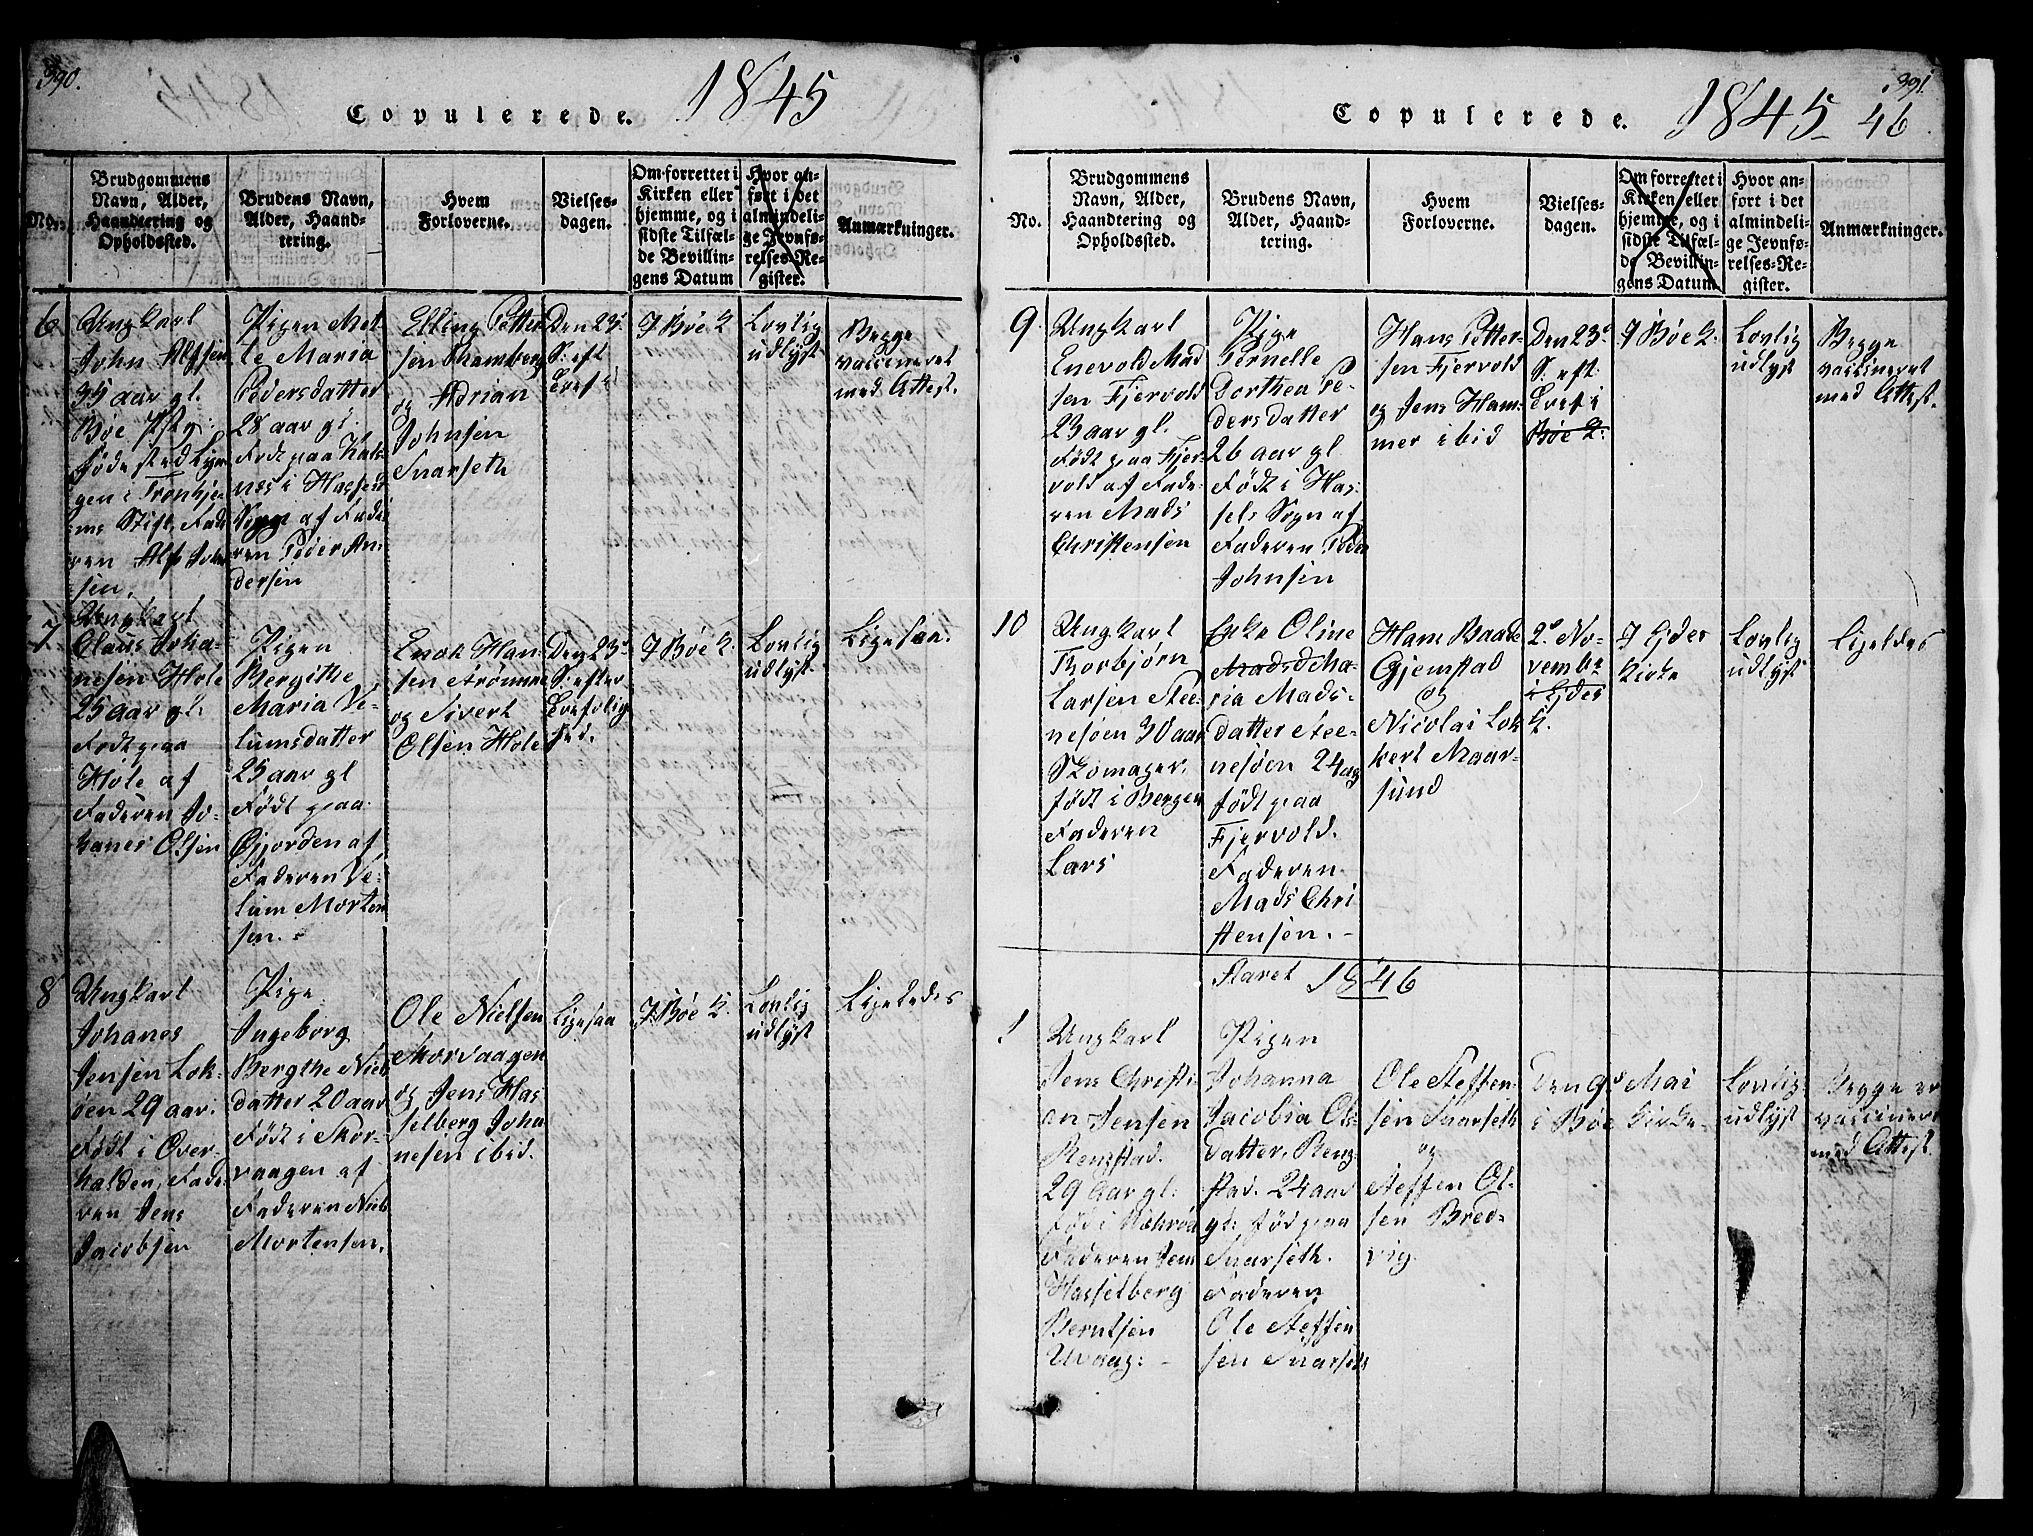 390.
Copulerede. 1845
No.
Brudgommens
Navn, Alder,
Haandtering og
Opholdssted.
Brudens Navn,
Alder, Haand-
tering.
Hvem
Forloverne.
Vielses-
dagen.
Om forrettet i
Kirken eller
hjemme, og i
sidste Tilfæl-
de Bevillin-
gens Datum
Hvor an-
ført i det
almindeli-
ge Jevnfø-
relses-Re-
gister.
Anmærkninger.
6
Ungkarl
John Alfsen
35 aar gl.
Bøe
fødested
gen i Trondhje-
ms Stift, Fade
ren Alf John
sen.
Pigen Met-
te Maria
Pedersdatter
28 aar gl.
Født paa
nes i Hassels
Sogn af Fade-
ren Peder An-
dersen
Elling Petter
sen
og Adrian
Johnsen
Snarseth
Den 23de
S: eft
Tref:
I Bøe K.
Lovlig
udlyst
Begge
vaccineret
med Attest.
7
Ungkarl
Claus Joha-
nesen Hole
25 aar gl.
Født paa
Hole af
Faderen Jo-
hanes Olsen
Pigen
Bergithe
Maria Ve-
lumsdatter
25 aar gl
Født paa
Gjorden af
Faderen Ve-
lum Morten
sen. -
Enok Han-
sen Strømme
og Sivert
Olsen Hole
Den 23de
S: efter
Trefolig
hed.
I Bøe K.
Lovlig
udlyst
Ligesaa.
8
Ungkarl
Johanes
Jensen Lok-
øen 29 aar.
Født i Over-
halden, Fade-
ren Jens
Jacobsen
Pige
Ingeborg
Bergthe Niels
datter 20 aar
Født i Skor-
vaagen af
Faderen Niels
Mortensen.
Ole Nielsen
Skorvaagen
og Jens Has
selberg Joha
nesen ibid.
Ligesaa
I Bøe K.
Lovlig
udlyst
Ligeledes
391.
Copulerede. 1845- 46
No.
Brudgommens
Navn, Alder,
Haandtering og
Opholdssted.
Brudens Navn,
Alder, Haand-
tering.
Hvem
Forloverne.
Vielses-
dagen.
Om forrettet i
Kirken eller
hjemme, og i
sidste Tilfæl-
de Bevillin-
gens Datum.
Hvor an-
ført i det
almindeli-
ge Jevnfø-
relses-Re-
gister.
Anmærkninger.
9.
Ungkarl
Enevold Mad
sen Fjervold
23 aar gl.
Født paa Fjer-
vold af Fade-
ren Mads
Christensen
Pige
Pernelle
Dorthea Pe-
dersdatter
26 aar gl
Født i Has-
sels Sogn af
Faderen Peder
Johnsen
Hans Petter-
sen Fjervold
og Jens Ham-
mer ibid
Den 23de
S: eft.
Tref i
Bøe K:
I Bøe K.
Lovlig
udlyst
Begge
vaccineret
med Attest.
10
Ungkarl
Thorbjørn
Larsen Stee-
nesøen 30 aar
Skomager.
født i Bergen
Faderen
Lars
Enke Oline
Mads Ma-
ria Mads-
datter Stee-
nesøen 24 aar
født paa
Fjervold.
Faderen
Mads Chri
stensen. -
Hans Baade
Gjemstad
og
Nicolai Lok
kert Maar-
sund
2de No-
vembe
i Ejdes
K.
I Ejdes
Kirke
Lovlig
udlyst
Ligeldes
Aaret 1846
1
Ungkarl
Jens Christi-
an Jensen
Rengstad.
29 Aar gl:
Fød i
Faderen Jens
Hasselberg
Berntsen
Pigen
Johanna
Jacobia Ols
datter, Reng-
stad. 24 aar
gl: fød paa
Snarseth.
Faderen
Ole Steffen
sen Snarseth
Ole Steffen-
sen Snarseth
og
Steffen Ol-
sen Bred-
vig.
Den 9de Mai
i Bøe Kirke-
Lovlig
udlyst
Begge er
vaccinere
med Attest.